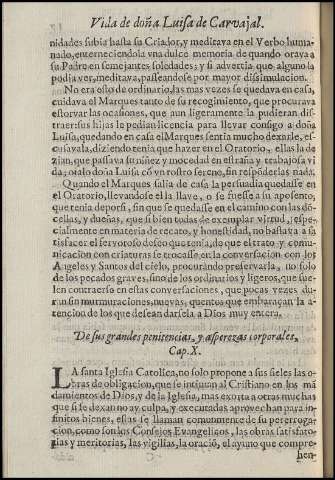 Vida de doña Luisa de Carvajal.
nidades subia hasta su Criador, y meditava en el Verbo huma-
nado, enterneciendola vna dulce memoria, de quando orava a
su Padre en semejantes soledades; y si advertia que alguno la
podia ver, meditava, passeandose por mayor dissimulacion.
No era esto de ordinario, las mas vezes se quedava en casa,
cuidava el Marques tanto de su recogimiento, que procurava
estorvar las ocasiones, que aun ligeramente la pudieran dis-
traer: sus hijas le pedian licencia para llevar consigo a doña
Luisa, quedando en casa el Marques sentia mucho dexarle, es-
cusavala, diziendo tenia que hazer en el Oratorio, ellas la de
zian, que passava su niñez y mocedad en estraña y trabajosa vi
da; oialo doña Luisa cõ vn rostro sereno, sin respõderlas nada.
Quando el Marques salia de casa la persuadia quedasse en
el Oratorio, llevandose el la llave, o se fuesse a su aposento,
que tenia de por si, sin que se quedasse en el camino con las dõ-
cellas, y dueñas, que si bien todas de exemplar virtud, espe-
cialmente en materia de recato, y honestidad, no bastava a sa
tisfacer el fervoroso deseo que tenia, de que el trato y comu-
nicacion con criaturas se trocasse en la conversacion con los
Angeles y Santos del cielo, procurando preservarla, no solo
de los pecados graves, sino de los ordinarios y ligeros, que sue-
len contraerse en estas conversaciones, que pocas vezes du-
ran sin murmuraciones, nuevas, quentos que embaraçan la a-
tencion de los que desean darsela a Dios muy entera.
De sus grandes penitencias, y asperezas corporales.
Cap. X.
LA santa Iglesia Catolica, no solo propone a sus fieles las o-
bras de obligacion, que se intiman al Cristiano en los mã
damientos de Dios, y de la Iglesia, mas exorta a otras muchas
que si se dexan no ay culpa, y executadas aprovechan para in-
finitos bienes, estas se llaman comunmente de supererroga-
cion, como son los Consejos Evangelicos, las obras satisfato-
rias y meritorias, las vigilias, la oraciõ, el ayuno que compre-
hen-